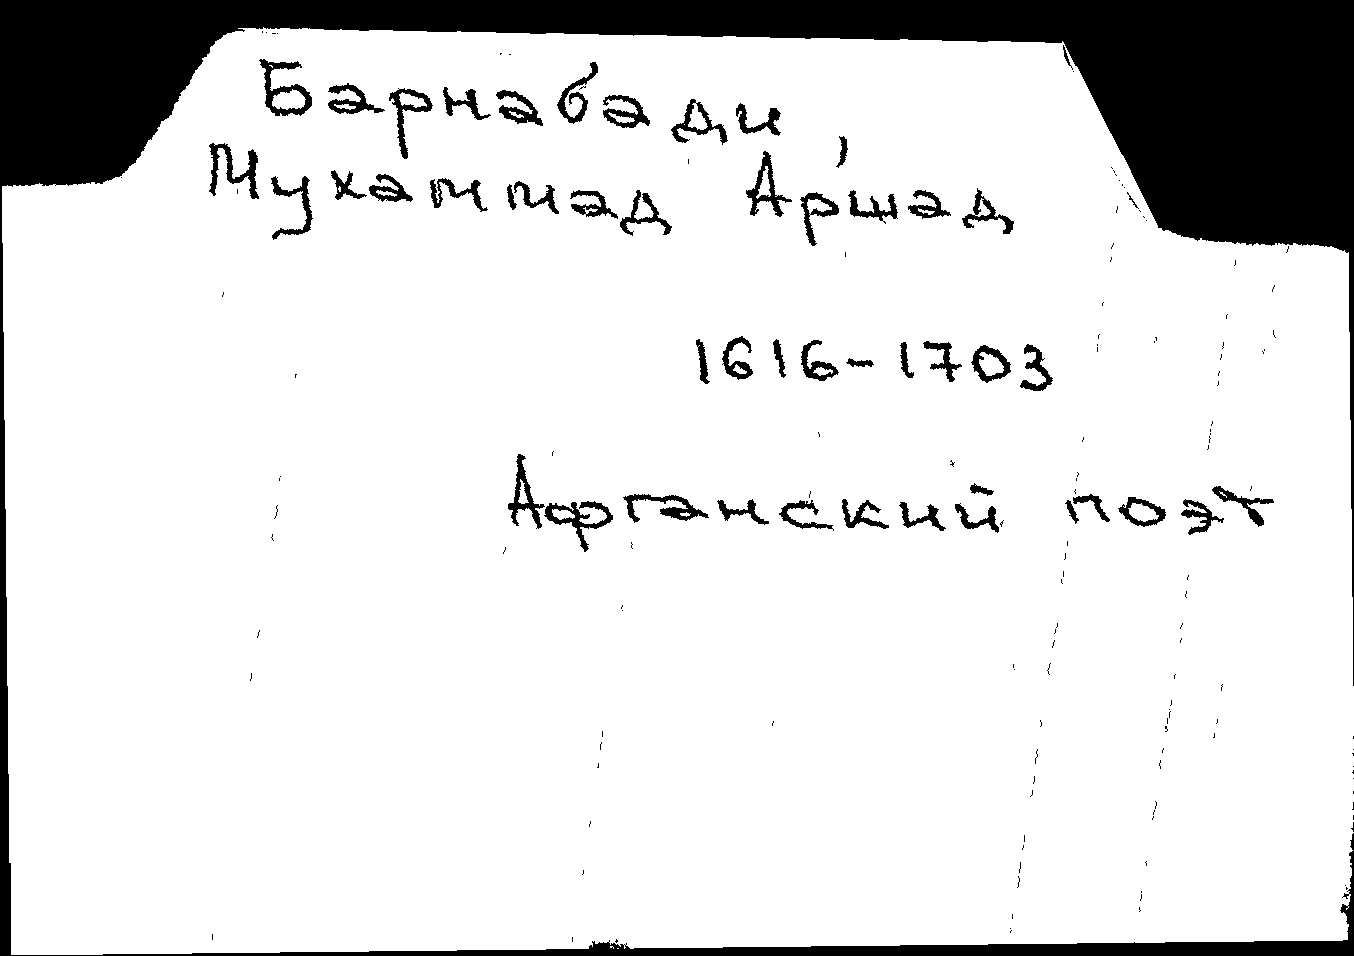 Барнабади,
Мухаммад Аршад
1616-1703
Афганский поэт